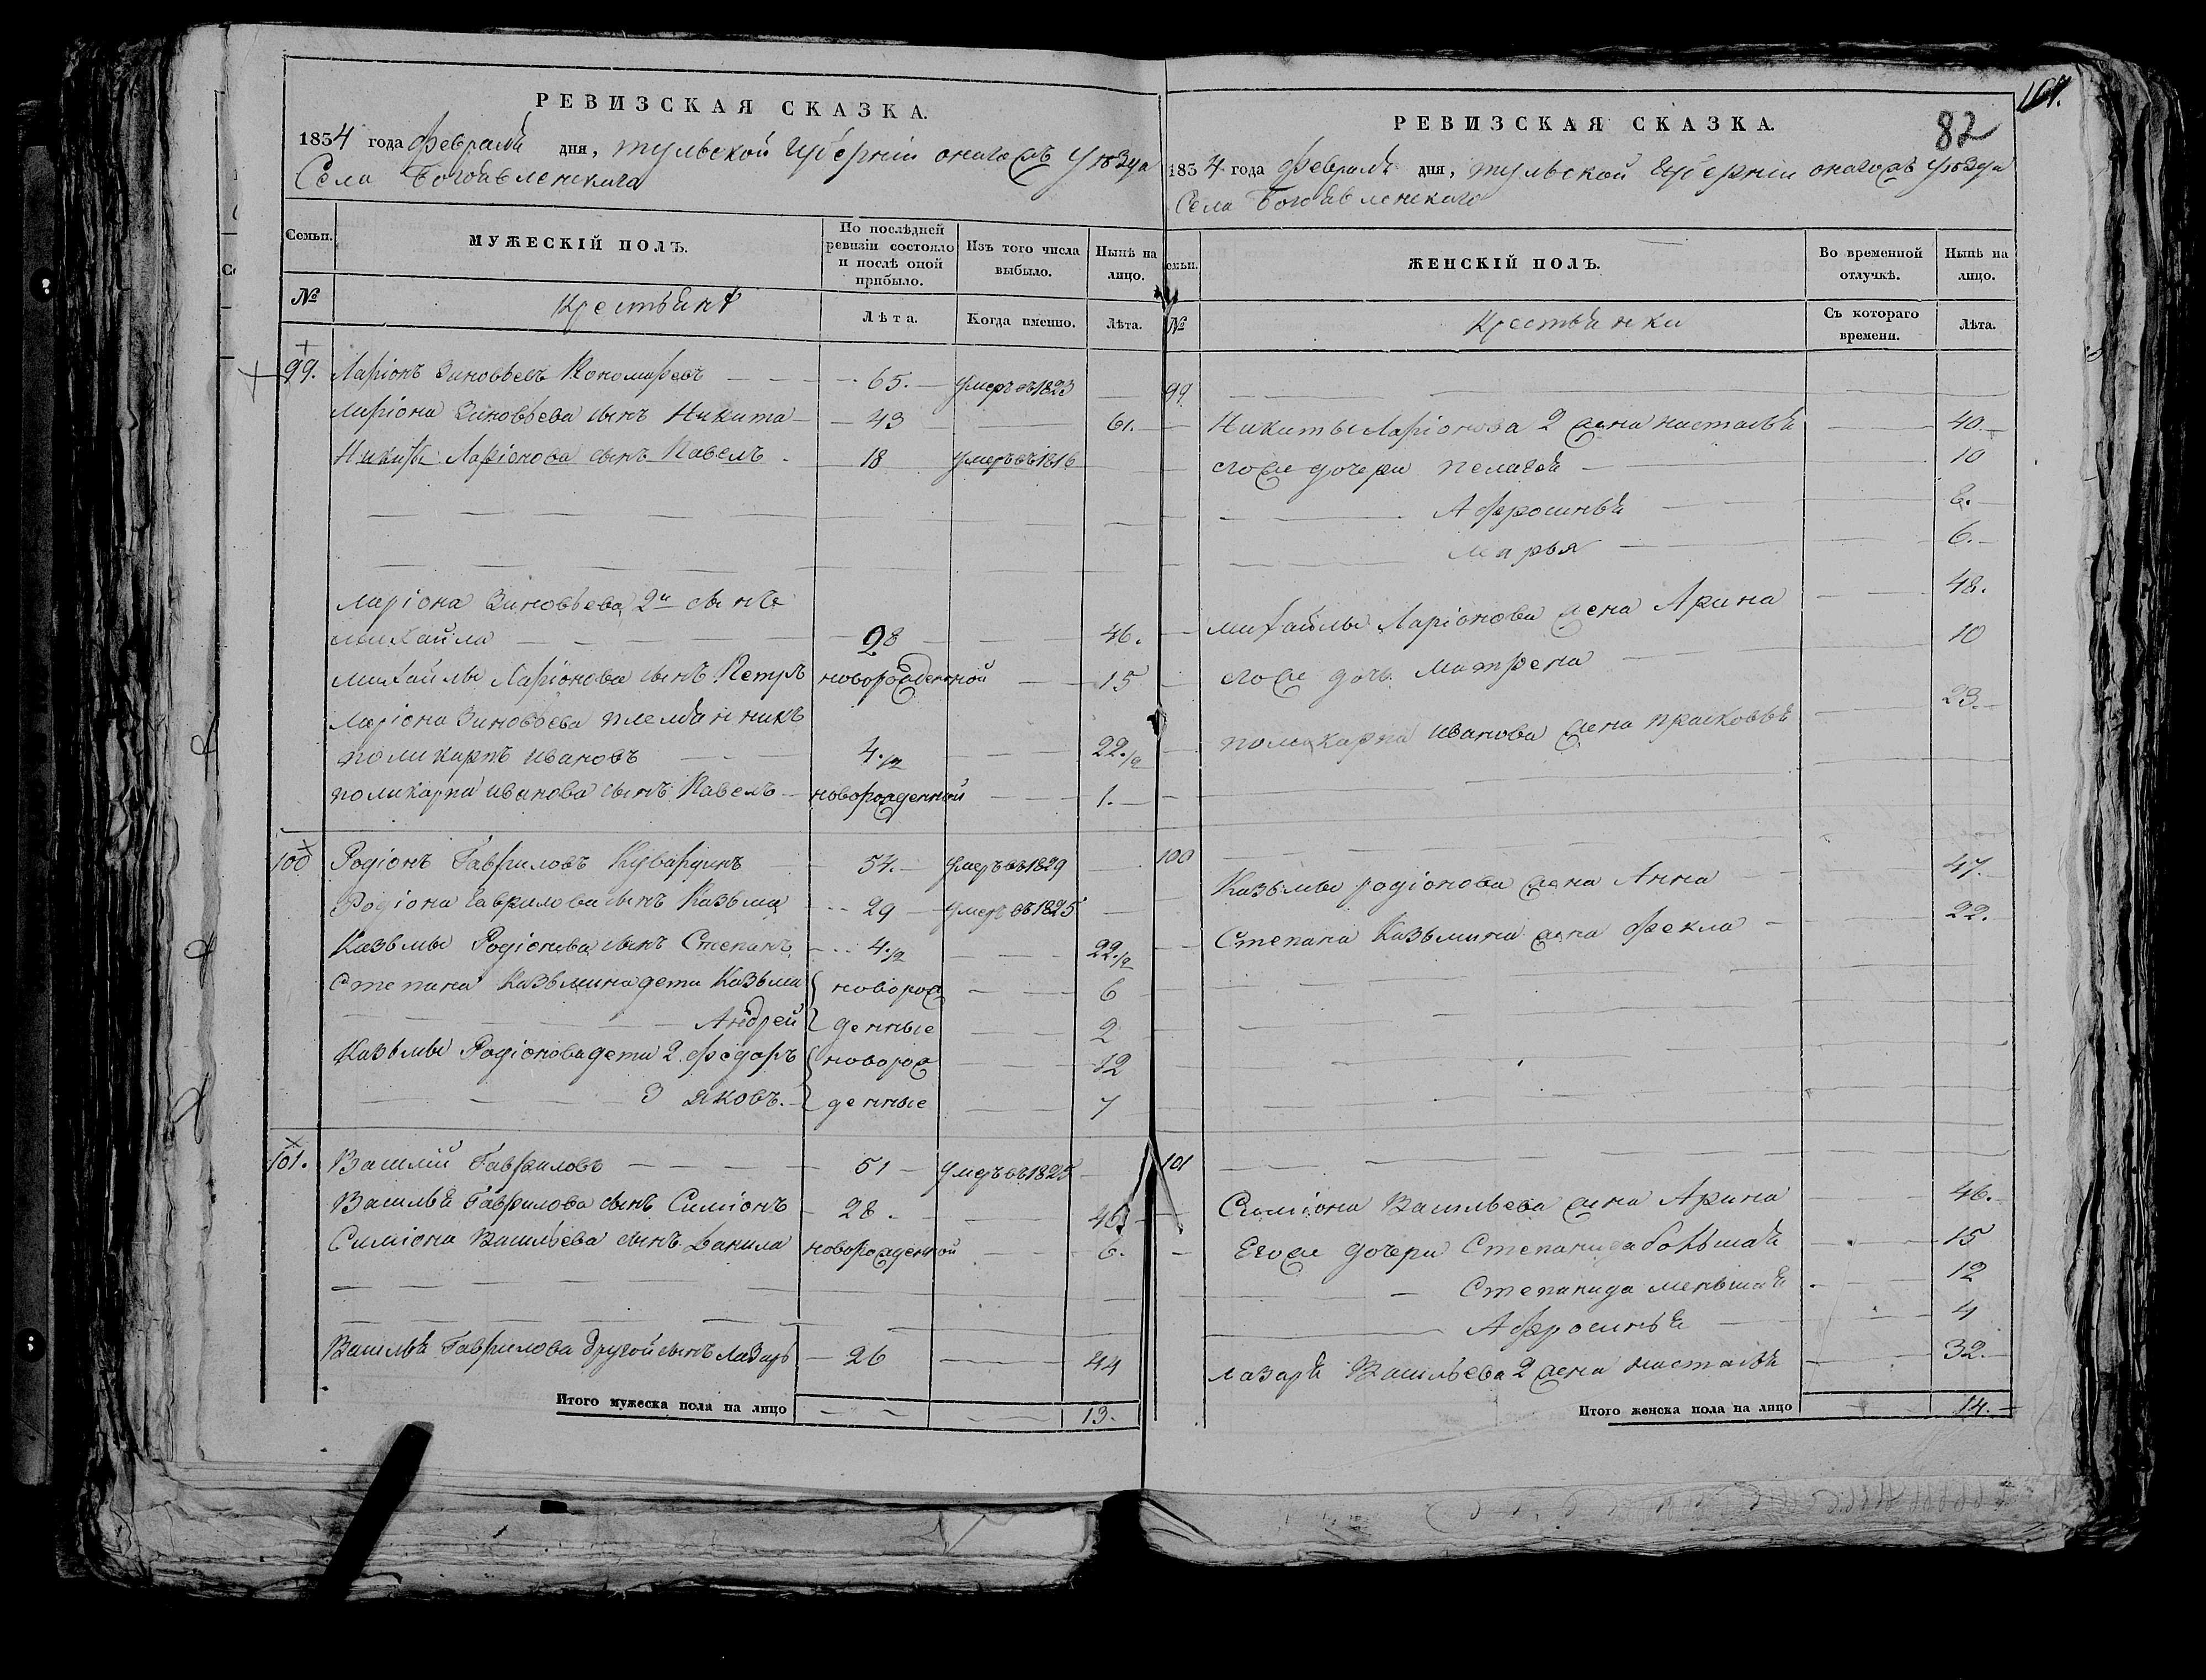 РЕВИЗСКАЯ СКАЗКА.
1834 года Февраля дня, тульской губерніи оногожъ уѣзда
Села Богоявленскаго
Семьи. МУЖЕСКІЙ ПОЛЪ. По послѣдней ревизіи состояло и послѣ оной прибыло. Изъ того числа выбыло. Нынѣ на лицо.
№ Крестьяне Лѣта. Когда именно. Лѣта.
99. Ларіонъ Зиновьевъ Кономаревъ 65. умеръ въ 1823
Ларіона Зиновьева сынъ Никита 43 61.
Никиты Ларіонова сынъ Павелъ 18 умеръ въ 1816
Ларіона Зиновьева 2й сынъ
михайла 28 46.
михайлы Ларіонова сынъ Петръ новорожденной 15
Ларіона Зиновьева племянникъ
поликарпъ ивановъ 4.1/2 22.1/2
поликарпа иванова сынъ Павелъ новорожденной 1.
100 Родіонъ Гавриловъ Кувардинъ 54. умеръ въ 1829
Родіона Гаврилова сынъ Казьма 29 умеръ въ 1825
Казьмы Родіонова сынъ Степанъ 4.1/2 22.1/2
Степана Казьмина дети Казьма новорож 6
Андрей денные 2
Казьмы Родіонова дети 2. федоръ новорож 12
3 яковъ. денные 7
101. Василій Гавриловъ 51 умеръ въ 1825
Василья Гаврилова сынъ Симіонъ 28. 46
Симіона Васильева сынъ Данила новорожденной 6.
Василья Гаврилова другой сынъ Лазарь 26 44
Итого мужеска пола на лицо 13.
107.
82
РЕВИЗСКАЯ СКАЗКА.
1834 года февраля дня, тульской губерніи оногожъ уѣзда
Села Богоявленскаго
Семьи. ЖЕНСКІЙ ПОЛЪ. Во временной отлучкѣ. Нынѣ на лицо.
№ Крестьянки Съ котораго времени. Лѣта.
99
Никиты Ларіонова 2 жена настасья 40.
егоже дочери пелагея 10
Афросинья 8.
марья 6.
михайлы Ларіонова жена Арина 48.
егоже дочь матрена 10
поликарпа иванова жена прасковья 23.
100
Казьмы родіонова жена Анна 47.
Степана Казьмина жена фекла 22.
101
Симіона Васильева жена Арина 46.
Егоже дочери Степанида большая 15
Степанида меньшая 12
Афросинья 4
лазаря Васильева 2 жена настасья 32.
Итого женска пола на лицо 14.